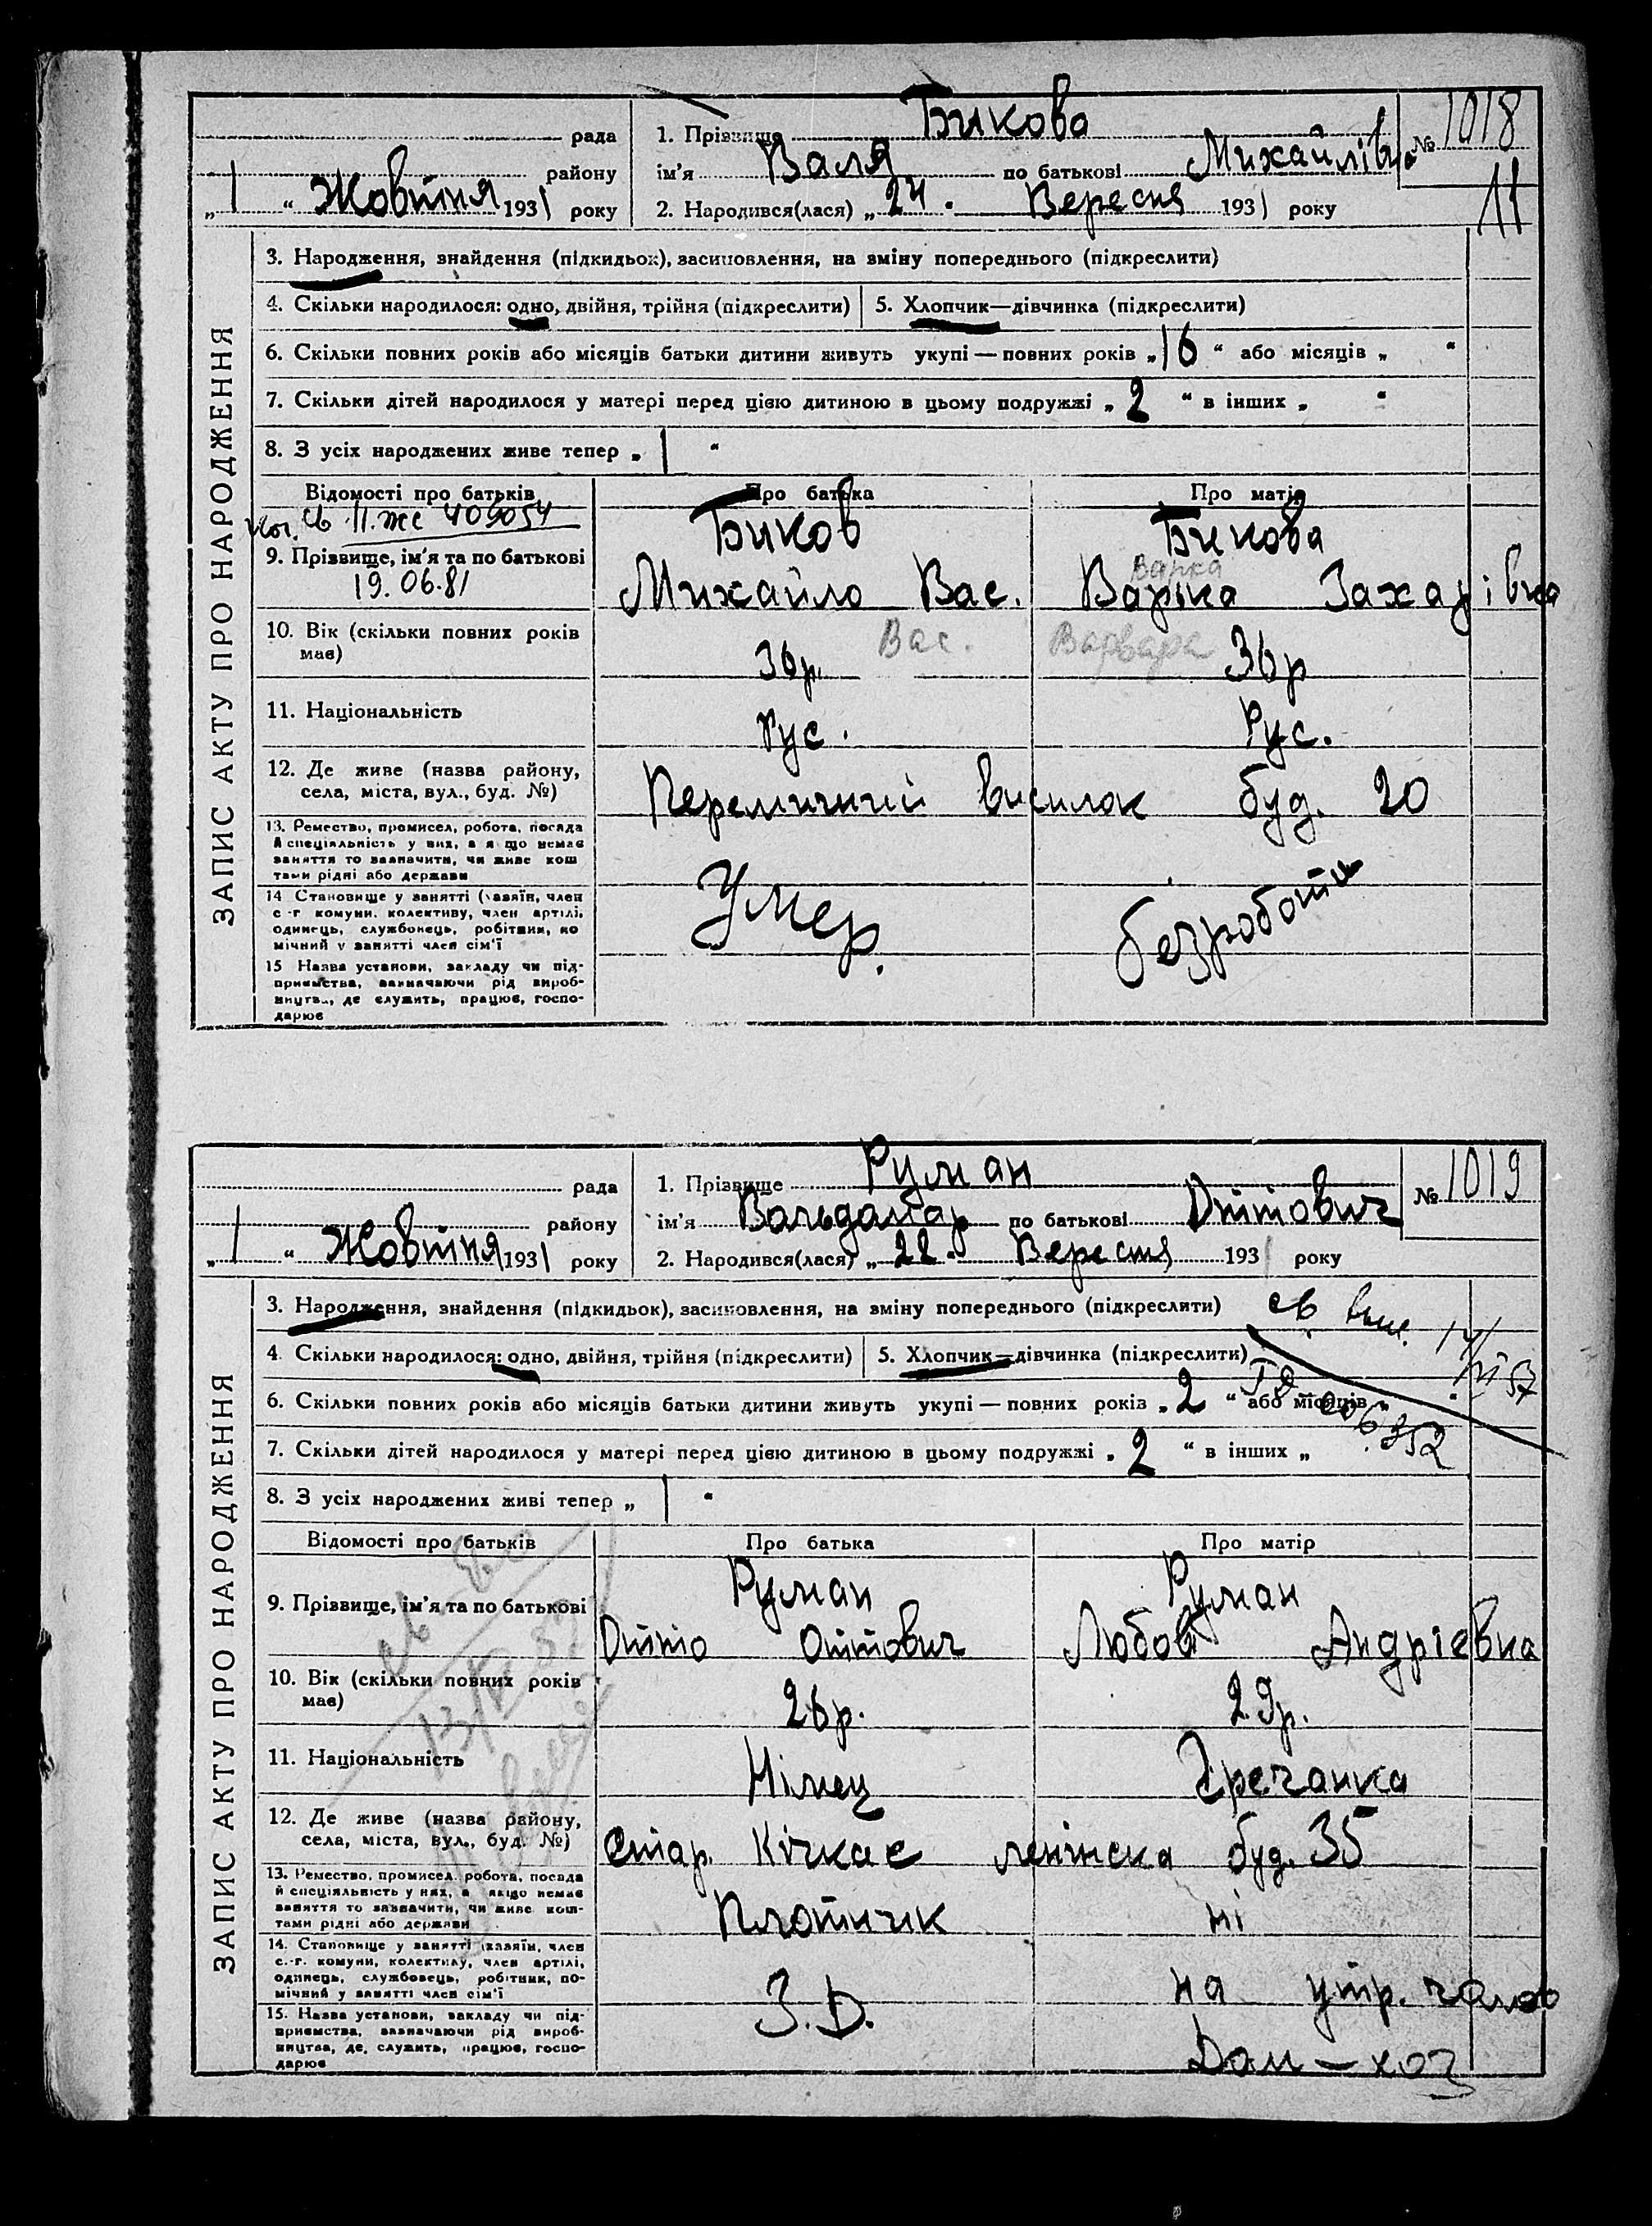 ЗАПИС АКТУ ПРО НАРОДЖЕННЯ
рада
району
„ 1 “ Жовтня 1931 року
1. Прізвище Бикова
ім'я Валя по батькові Михайлівна
2. Народився(лася) „ 24 . Вересня 1931 року
№ 1018
11
3. Народження, знайдення (підкидьок), засиновлення, на зміну попереднього (підкреслити)
4. Скільки народилося: одно, двійня, трійня (підкреслити) 5. Хлопчик—дівчинка (підкреслити)
6. Скільки повних років або місяців батьки дитини живуть укупі — повних років „ 16 “ або місяців „ “
7. Скільки дітей народилося у матері перед цією дитиною в цьому подружжі „ 2 “ в інших „ “
8. З усіх народжених живе тепер „ 1 “
Відомості про батьків Про батька Про матір
св. II. жс 409054
19.06.81
9. Прізвище, ім'я та по батькові
Биков Бикова
Варка
Михайло Вас. Варька Захарівна
Вас. Варвара
10. Вік (скільки повних років має)
36р. 36р
11. Національність
Рус. Рус.
12. Де живе (назва району, села, міста, вул., буд. №)
Перемичний висилок буд. 20
13. Ремество, промисел, робота, посада
й спеціяльність у них, а я що немає
заняття то зазначити, чи живе кош
тами рідні або держави
14 Становище у занятті (хазяїн, член
с-г комуни, колективу, член артілі,
одинець, службовець, робітник, по
мічний у занятті член сім'ї
Умер. безроботн
15 Назва установи, закладу чи під-
приємства, зазначаючи рід вироб-
ництва, де служить, працює, госпо-
дарює
ЗАПИС АКТУ ПРО НАРОДЖЕННЯ
рада
району
„ 1 “ Жовтня 1931 року
1. Прізвище Руман
ім'я Вольдамар по батькові Оттович
2. Народився(лася) „ 22 . Вересня 1931 року
№ 1019
3. Народження, знайдення (підкидьок), засиновлення, на зміну попереднього (підкреслити)
св. выс.
4. Скільки народилося: одно, двійня, трійня (підкреслити) 5. Хлопчик—дівчинка (підкреслити)
6. Скільки повних років або місяців батьки дитини живуть укупі — повних років „ 2 “ або місяців „
7. Скільки дітей народилося у матері перед цією дитиною в цьому подружжі „ 2 “ в інших „
8. З усіх народжених живі тепер „ 1 “
Відомості про батьків Про батька Про матір
9. Прізвище, ім'я та по батькові
Руман Руман
Отто Оттович Любов Андрієвна
10. Вік (скільки повних років має)
26р. 29р.
11. Національність
Німец Гречанка
12. Де живе (назва району, села, міста, вул., буд. №)
Стар. Кічкас ленінска буд. 35
13. Ремество, промисел, робота, посада
й спеціяльність у них, а якщо немає
заняття то зазначити, чи живе кош-
тами рідні або держави
Плотнік ні
14. Становище у занятті (хазяїн, член
с.-г. комуни, колективу, член артілі,
одинець, службовець, робітник, по-
мічний у занятті член сім'ї
З.D. на утр. чолов
15. Назва установи, закладу чи під-
приємства, зазначаючи рід вироб-
ництва, де служить, працює, госпо-
дарює
Дом – хоз